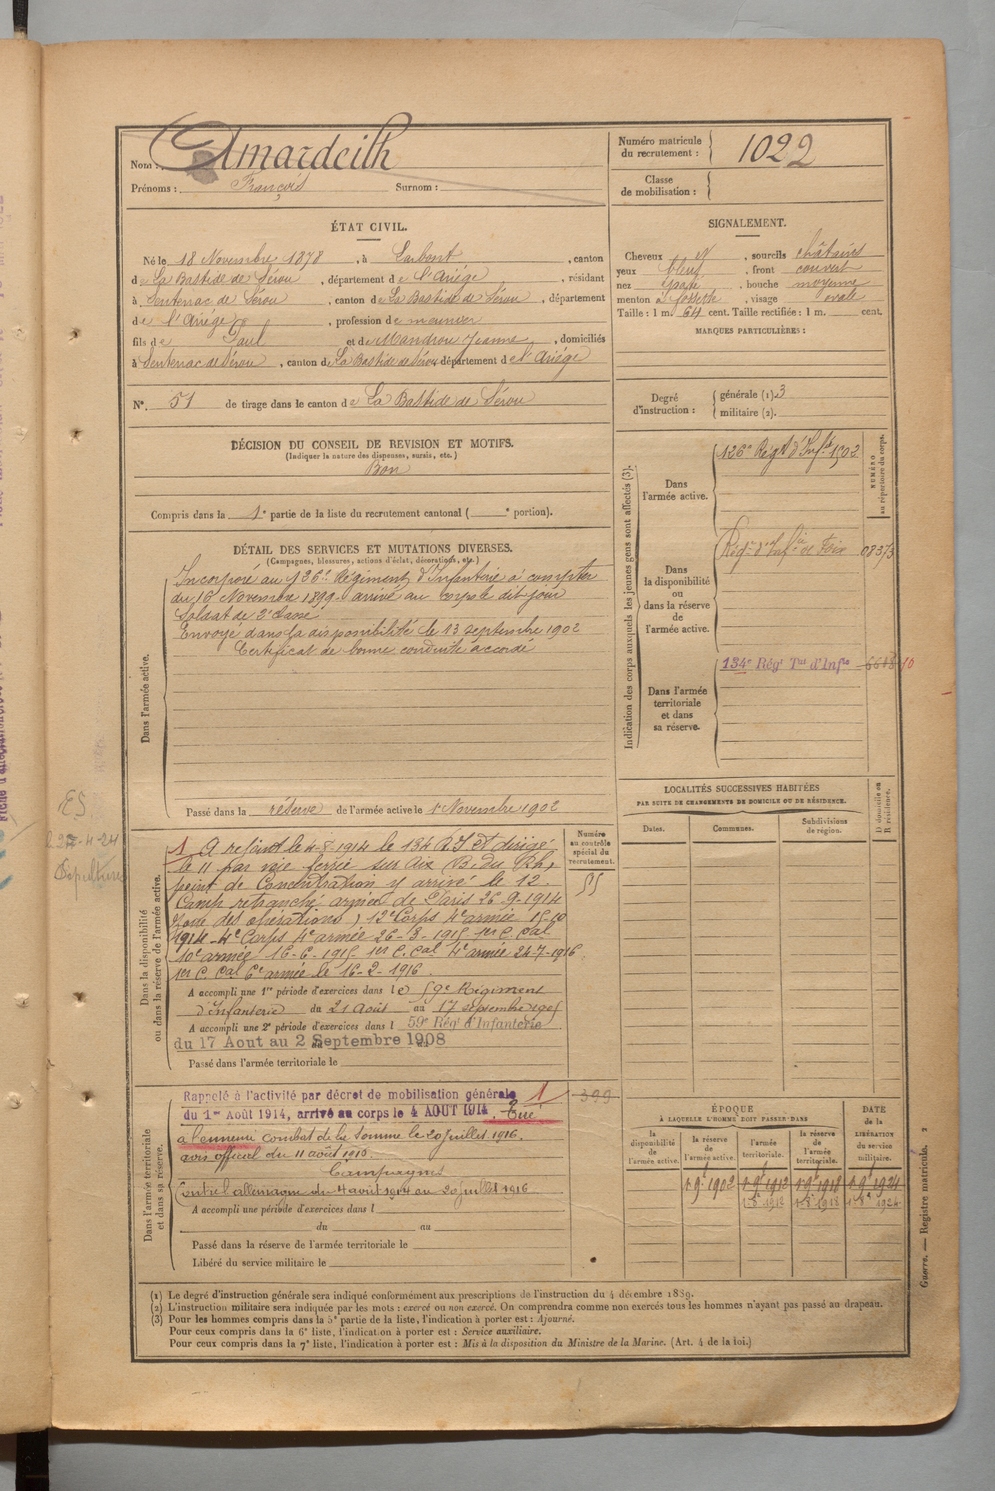 Nom : Amardeilh
Prénoms : François Surnom :
Numéro matricule du recrutement : 1022
Classe de mobilisation :
ÉTAT CIVIL.
Né le 18 Novembre 1878, à Larbont, canton
de La Bastide de Sérou, département de l'Ariége, résidant
à Sentenac de Sérou, canton de La Bastide de Sérou, département
de l'Ariége, profession de meunier
fils de Paul et de Mandrou Jeanne, domiciliés
à Sentenac de Sérou, canton de La Bastide de Sérou département de l'Ariége
N°. 51 de tirage dans le canton de La Bastide de Sérou
SIGNALEMENT.
Cheveux et, sourcils châtains
yeux bleus, front couvert
nez, bouche moyenne
menton à fossette, visage ovale
Taille : 1 m. 64 cent. Taille rectifiée : 1 m. cent.
MARQUES PARTICULIÈRES :
Degré d'instruction : générale (1). 3
militaire (2).
DÉCISION DU CONSEIL DE REVISION ET MOTIFS.
(Indiquer la nature des dispenses, sursis, etc.)
Bon
Compris dans la 1e partie de la liste du recrutement cantonal ( e portion).
DÉTAIL DES SERVICES ET MUTATIONS DIVERSES.
(Campagnes, blessures, actions d'éclat, décorations, etc.)
Dans l'armée active.
Incorporé au 126e Régiment d'Infanterie à compter
du 16 Novembre 1899 arrivé au corps le dit jour
Soldat de 2e classe
Envoyé dans la disponibilité le 23 septembre 1902
Certificat de bonne conduite accordé
Passé dans la réserve de l'armée active le 1 Novembre 1902
Indication des corps auxquels les jeunes gens sont affectés (3).
NUMÉRO au répertoire du corps.
Dans l'armée active.
126e Régt d'Infie 1902
Dans la disponibilité ou dans la réserve de l'armée active.
Régt d'Infie de Foix 08373
Dans l'armée territoriale et dans sa réserve.
134e Régt Tal d'Infie
LOCALITÉS SUCCESSIVES HABITÉES
PAR SUITE DE CHANGEMENTS DE DOMICILE OU DE RÉSIDENCE.
Dates. Communes. Subdivisions de région. D domicile ou R résidence.
Dans la disponibilité ou dans la réserve de l'armée active.
Numéro au contrôle spécial du recrutement.
1 A rejoint le 4-8-1914 le 134 R.I. Et dirigé
le 11 par voie ferrée sur Aix B. du Rh,
point de Concentration y arrivé le 12.
Camp retranché armée de Paris 26-9-1914
Zone des opérations) 12e Corps 4e armée 15-10
1914 - 4e Corps 4e armée 26-3-1915 1er C. Cal
10e armée 16-6-1915 1er C. Cal 4e armée 24-7-1916
1er C. Cal 6e armée le 16-2-1916.
A accompli une 1re période d'exercices dans le 59e Régiment
d'Infanterie du 21 Août au 17 septembre 1905
A accompli une 2e période d'exercices dans l 59e Régt d'Infanterie
du 17 Aout au 2 Septembre 1908
Passé dans l'armée territoriale le
Dans l'armée territoriale et dans sa réserve.
Rappelé à l'activité par décret de mobilisation générale 1
du 1er Août 1914, arrivé au corps le 4 AOUT 1914. Tué
à l'ennemi combat de la Somme le 20 Juillet 1916.
avis officiel du 11 août 1916.
Campagnes
Contre l'allemagne du 4 août 1914 au 20 juillet 1916
A accompli une période d'exercices dans l
du au
Passé dans la réserve de l'armée territoriale le
Libéré du service militaire le
399
ÉPOQUE
À LAQUELLE L'HOMME DOIT PASSER DANS
la disponibilité de l'armée active. la réserve de l'armée active. l'armée territoriale. la réserve de l'armée territoriale.
DATE de la LIBÉRATION du service militaire.
1-9e 1902 1-9e 1912 1-9e 1918 1-9e 1924
1-8e 1912 1-8e 1918 1-8e 1924
(1) Le degré d'instruction générale sera indiqué conformément aux prescriptions de l'instruction du 4 décembre 1889.
(2) L'instruction militaire sera indiquée par les mots : exercé ou non exercé. On comprendra comme non exercés tous les hommes n'ayant pas passé au drapeau.
(3) Pour les hommes compris dans la 5e partie de la liste, l'indication à porter est : Ajourné.
Pour ceux compris dans la 6e liste, l'indication à porter est : Service auxiliaire.
Pour ceux compris dans la 7e liste, l'indication à porter est : Mis à la disposition du Ministre de la Marine. (Art. 4 de la loi.)
Guerre. — Registre matricule. 2